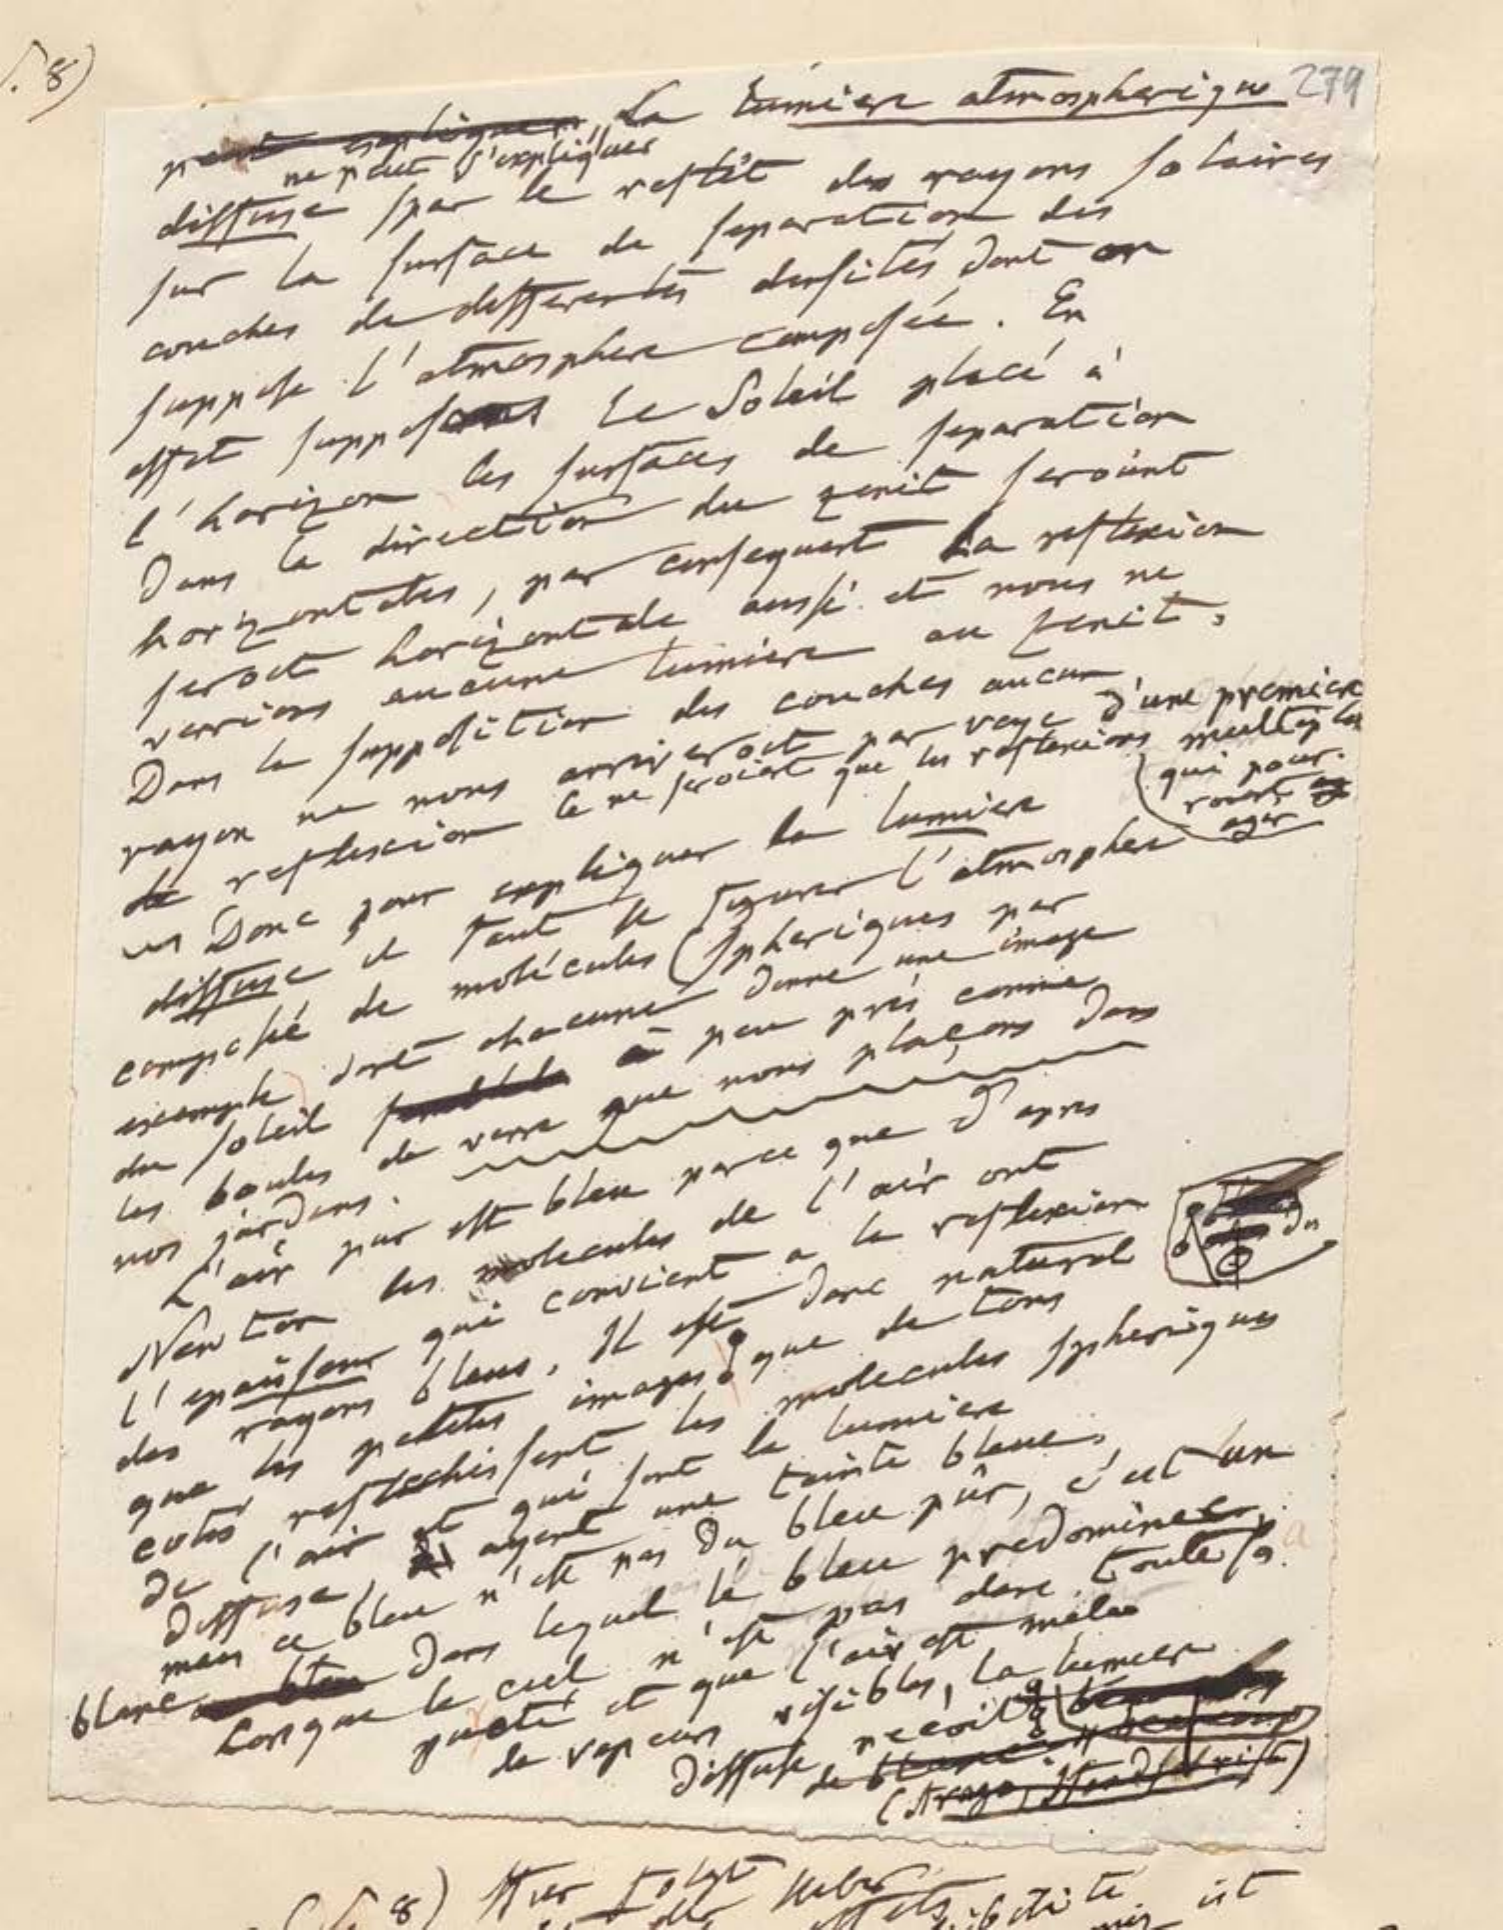 S. 8)
279
peut expliquer La lumiere atmospherique
ne peut s'expliquer
diffuse par le reflèt des rayons solaires
sur la surface de separation des
couches de differentes densités, dont on
suppose l'atmosphere composée. En
effet supposons le Soleil placé à
l'horizon les surfaces de separation
Dans la direction du zenit seroient
horizontales, par consequent la reflexion
seroit horizontale aussi et nous ne
verrions aucune lumiere au zenit.
Dans la supposition des couches aucun
rayon ne nous arriveroit par voye d'une premiere
de reflexion Ce ne seroient que les reflexions multiples
qui pour-
roient
agir
Donc pour expliquer la lumiere
diffuse il faut se figurer l'atmosphere
composée de molécules (spheriques par
exemple dont chacune donne une image
du soleil semblable à peu près comme
les boules de verre que nous plaçons dans
nos jardins.
L'air pur est bleu parce que d'apres
Newton les molecules de l'air ont
l'epaisseur qui convient a la reflexion
des rayons bleus. Il est donc naturel
que les petites images que de tous
cotés reflechissent les molecules spheriques
de l'air et qui sont la lumiere
diffuse, ayent une teinte bleue,
mais ce bleu n'est pas du bleu pûr, c'est un
blanc dans lequel le bleu predomine.
Lorsque le ciel n'est pas dans toute sa
pureté et que l'air est mêlé
de vapeurs visibles, la lumiere
diffuse recoit
de blanc beaucoup
(Arago, Handschrift)
(S. 8) Hier folgt